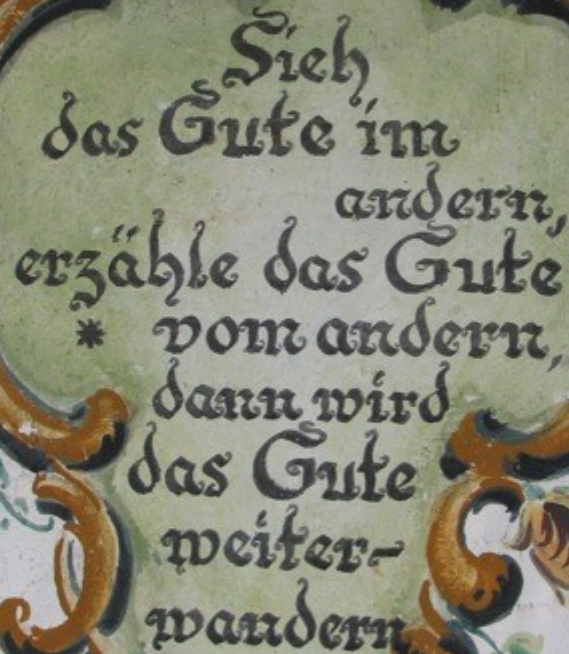 Sieh
das Gute im
andern,
erzähle das Gute
* vom andern,
dann wird
das Gute
weiter-
wandern